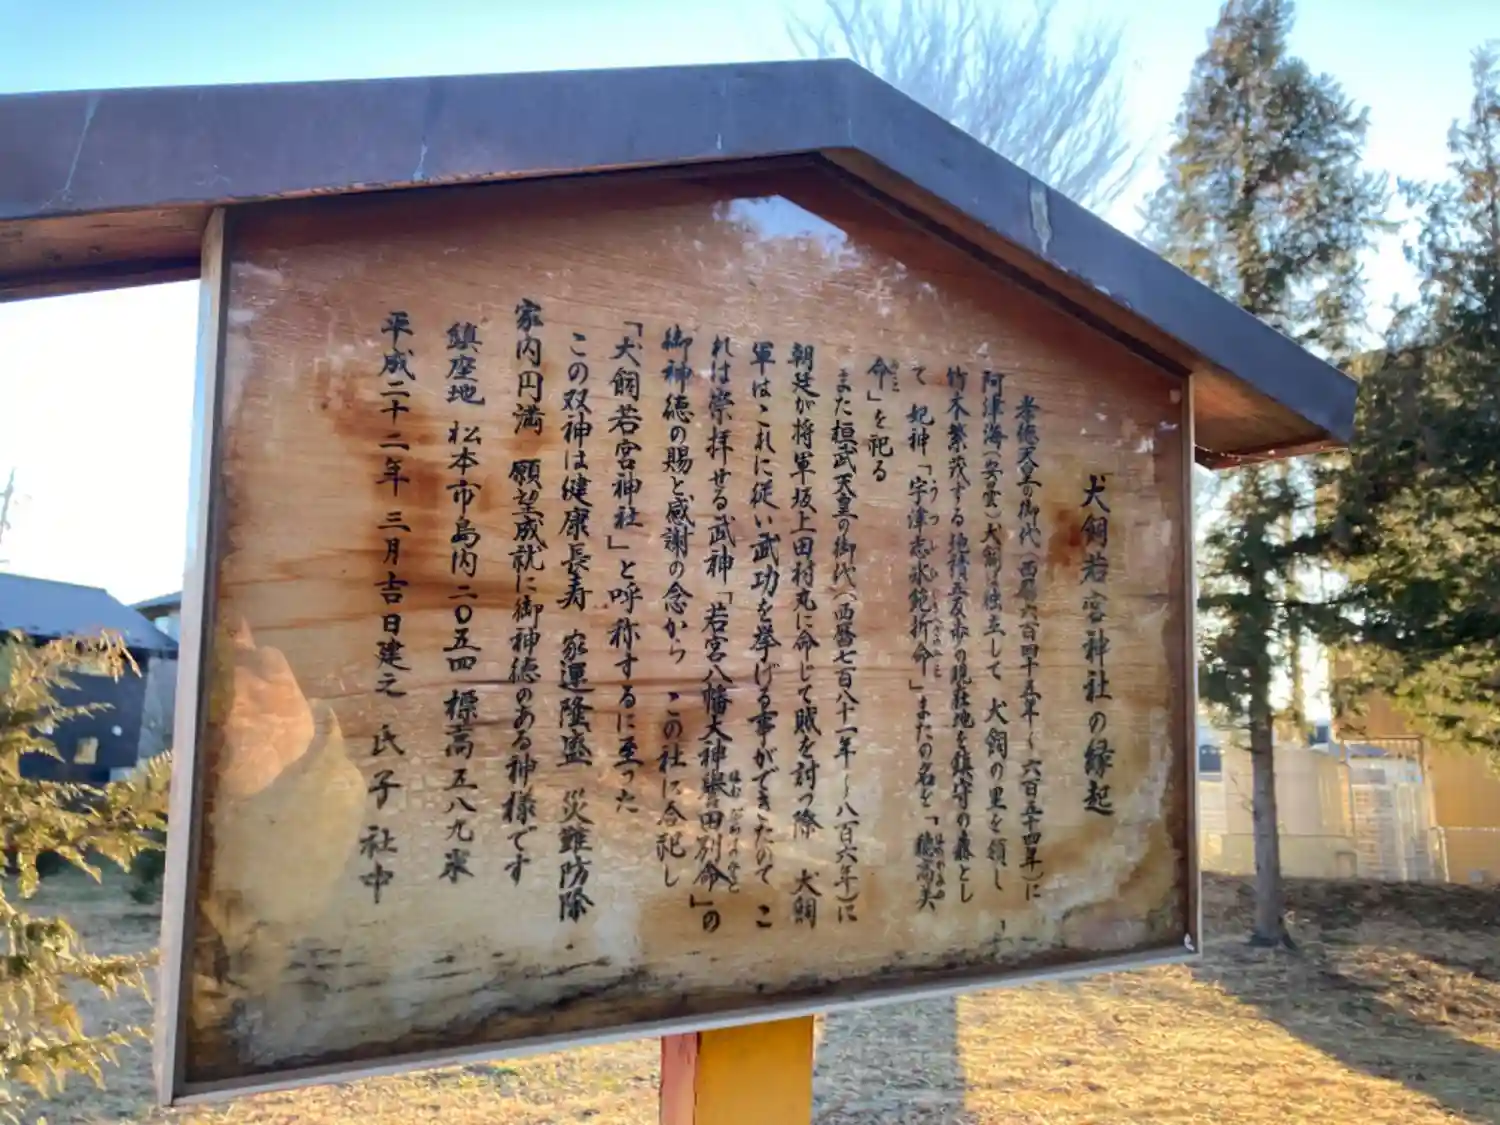 犬飼若宮神社の縁起
孝徳天皇の御代(西暦六百四十五年~六百五十四年)に
阿津海(安雲)犬飼は独立して 犬飼の里を領し
竹木繁茂する地積五反歩の現社地を鎮守の森とし
て 妃神「宇津志水鉋折命」またの名を「穂高美
命」を祀る
また桓武天皇の御代(西暦七百八十一年~八百六年)に
朝廷が将軍坂上田村丸に命じて賊を討つ際 犬飼
軍はこれに従い武功を挙げる事ができたので こ
れは崇拝せる武神「若宮八幡大神誉田別命」の
御神徳の賜と感謝の念から この社に合祀し
「犬飼若宮神社」と呼称するに至った
この双神は健康長寿 家運隆盛 災難防除
家内円満 願望成就に御神徳のある神様です
鎮座地 松本市島内二〇五四 標高五八九米
平成二十二年 三月吉日建之 氏子 社中